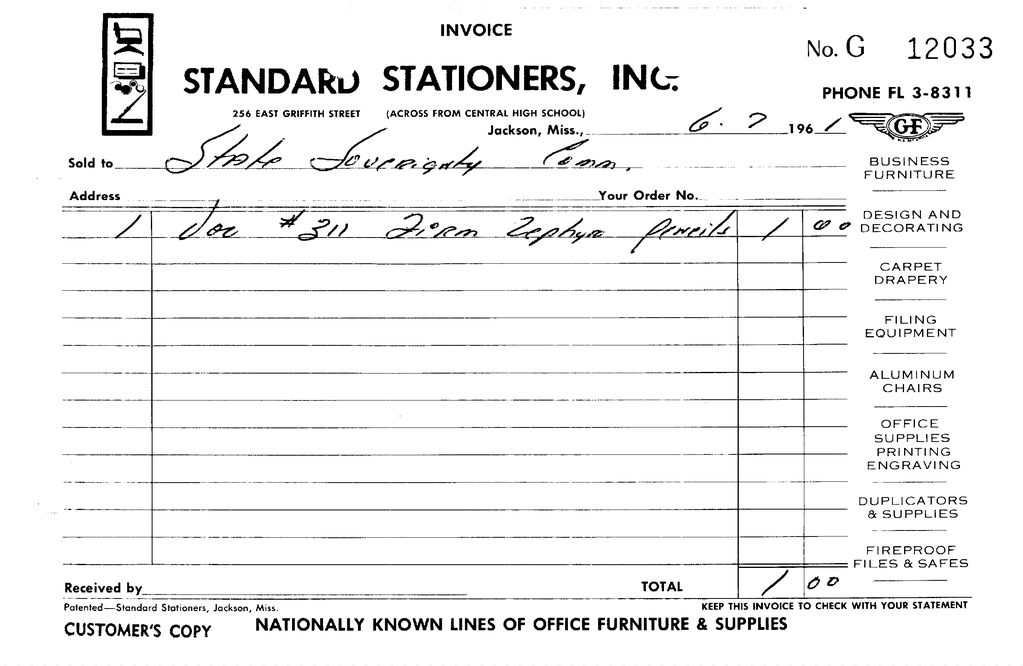 INVOICE
No. G 12033
STANDARD STATIONERS, INC.
PHONE FL 3-8311
256 EAST GRIFFITH STREET (ACROSS FROM CENTRAL HIGH SCHOOL)
Jackson, Miss., 6. 7 1961
GF
Sold to State Soverignty Comm.
BUSINESS
FURNITURE
Address Your Order No.
1 Doz #311 Firm Zephyr Pencils 1 00
DESIGN AND
DECORATING
CARPET
DRAPERY
FILING
EQUIPMENT
ALUMINUM
CHAIRS
OFFICE
SUPPLIES
PRINTING
ENGRAVING
DUPLICATORS
& SUPPLIES
FIREPROOF
FILES & SAFES
Received by TOTAL 1 00
Patented—Standard Stationers, Jackson, Miss.
KEEP THIS INVOICE TO CHECK WITH YOUR STATEMENT
CUSTOMER'S COPY NATIONALLY KNOWN LINES OF OFFICE FURNITURE & SUPPLIES